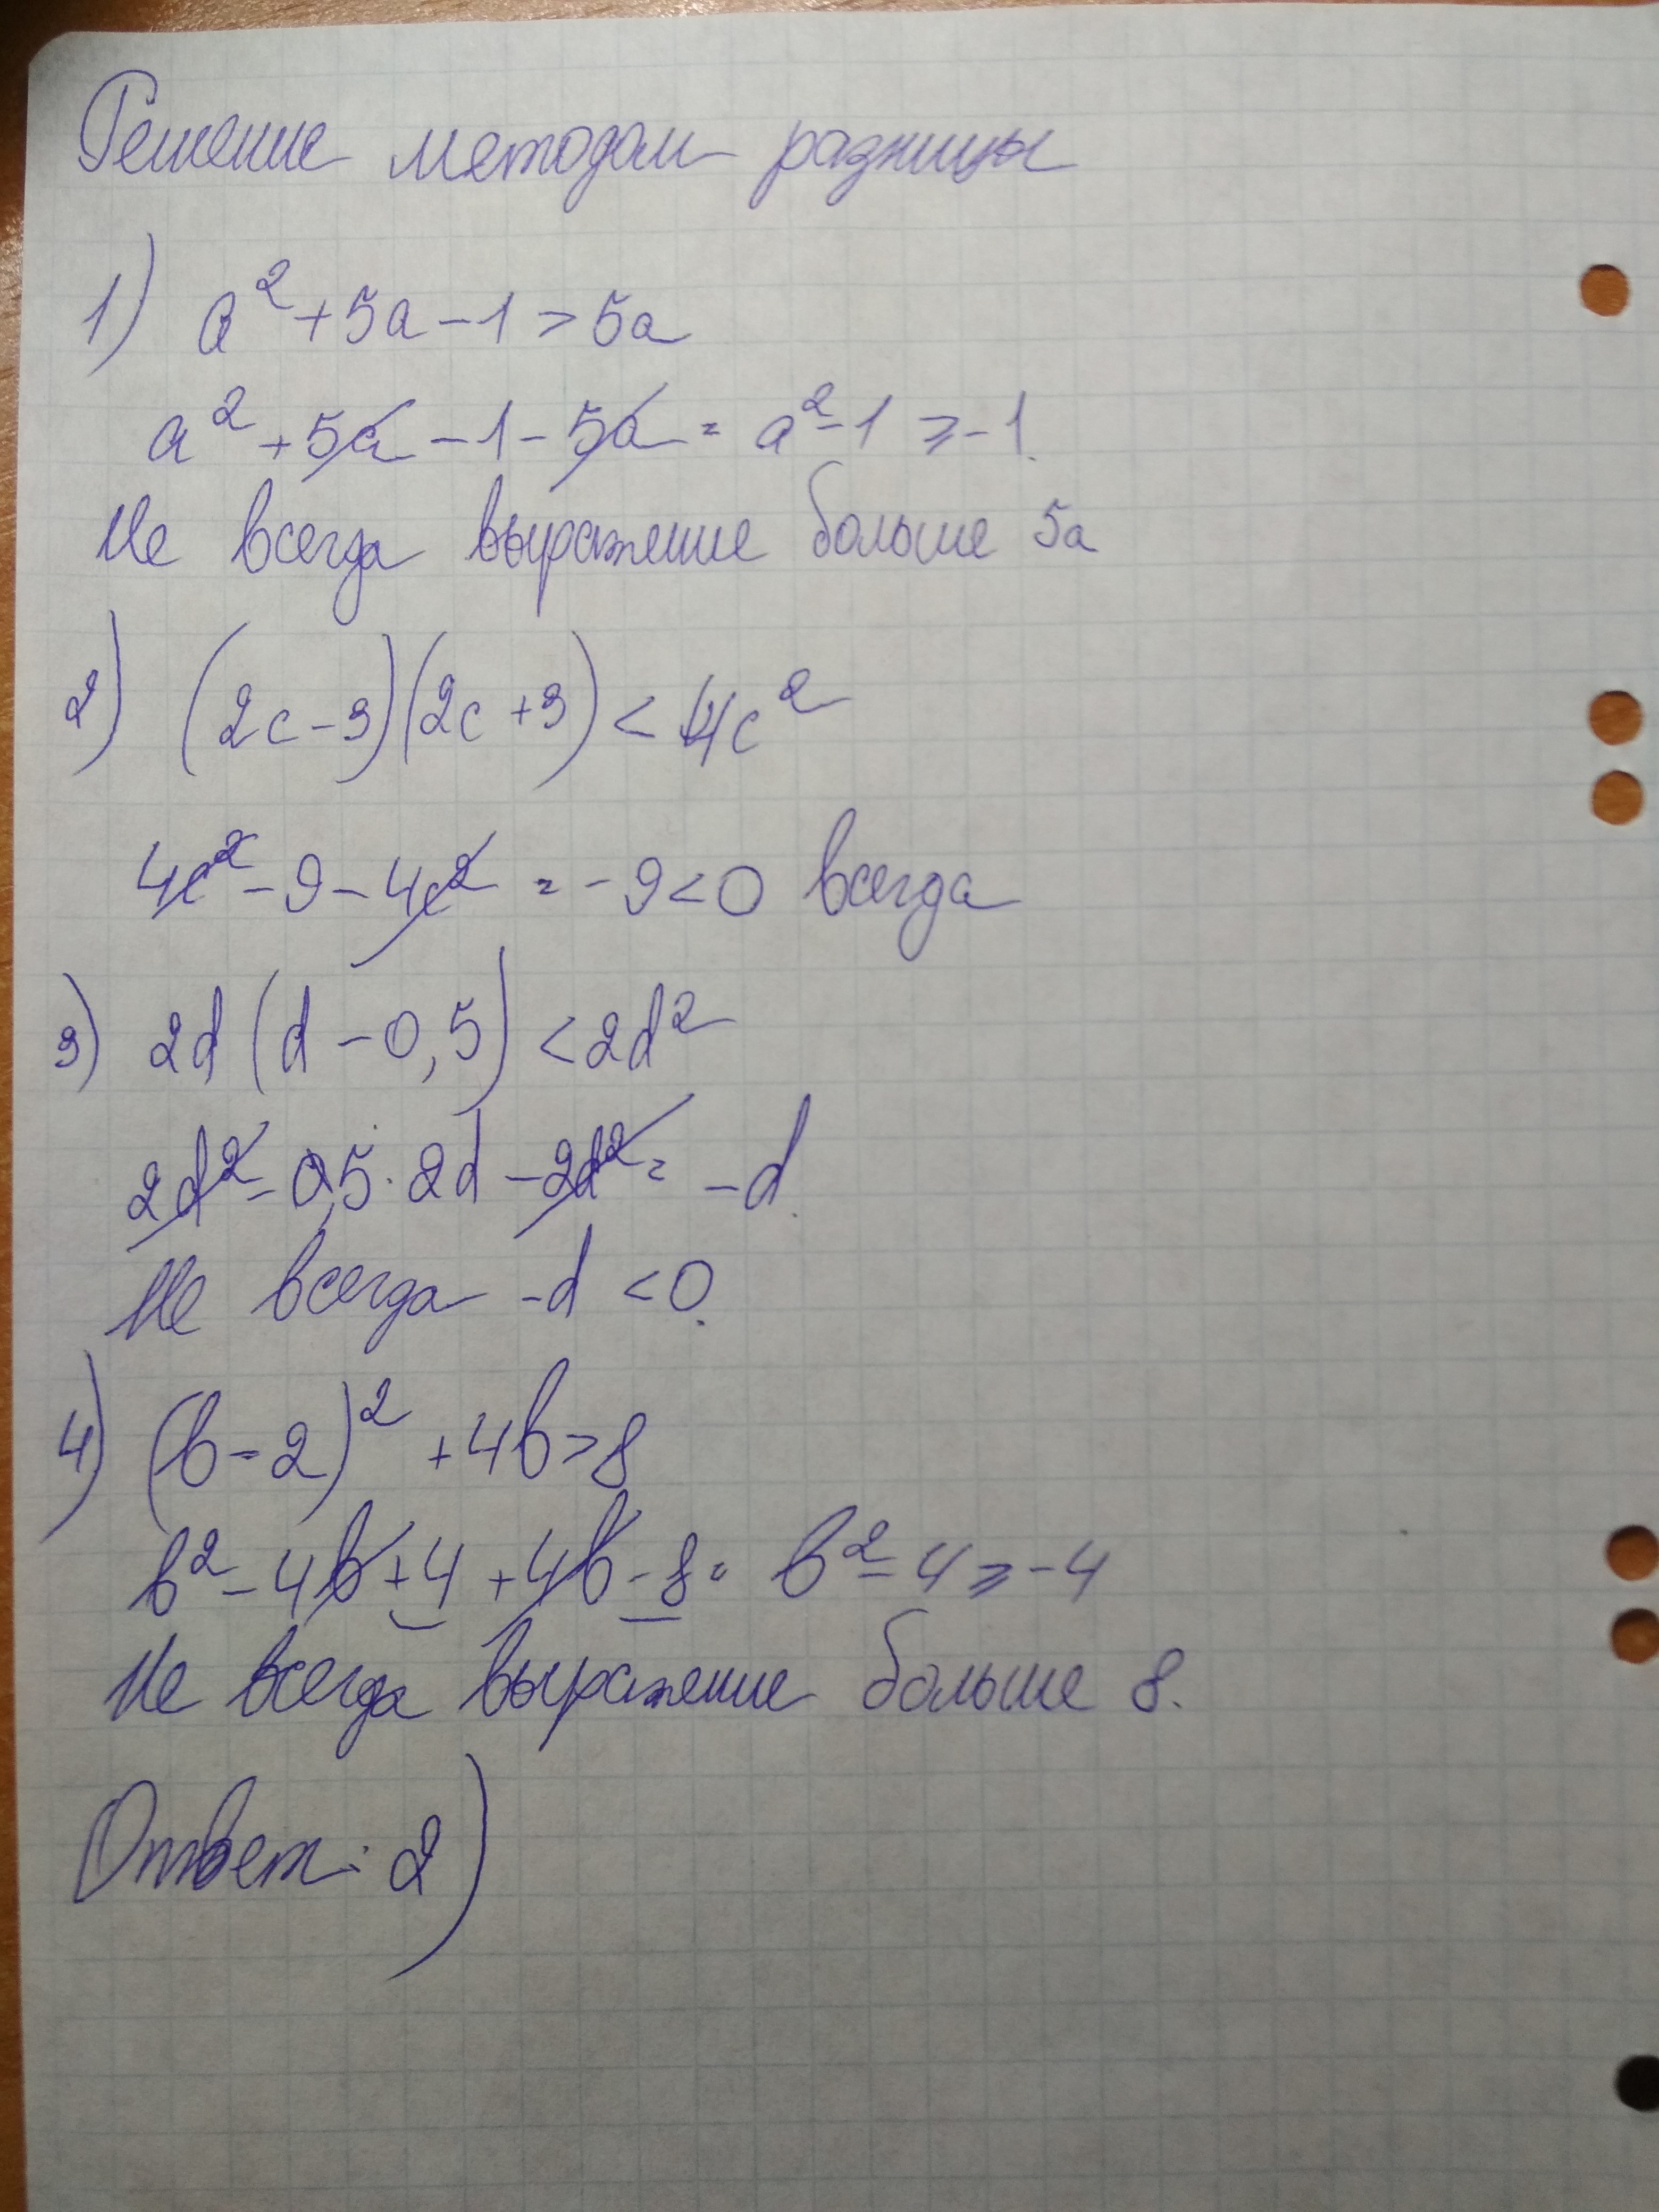 Решение методом разницы
1) a² + 5a - 1 > 5a
a² + 5a - 1 - 5a = a² - 1 ⩾ -1.
Не всегда выражение больше 5a
2) (2c - 3)(2c + 3) < 4c²
4c² - 9 - 4c² = -9 < 0 всегда
3) 2d (d - 0,5) < 2d²
2d² - 0,5 · 2d - 2d² = -d.
Не всегда -d < 0.
4) (b - 2)² + 4b > 8
b² - 4b + 4 + 4b - 8 = b² - 4 ⩾ -4
Не всегда выражение больше 8.
Ответ: 2)